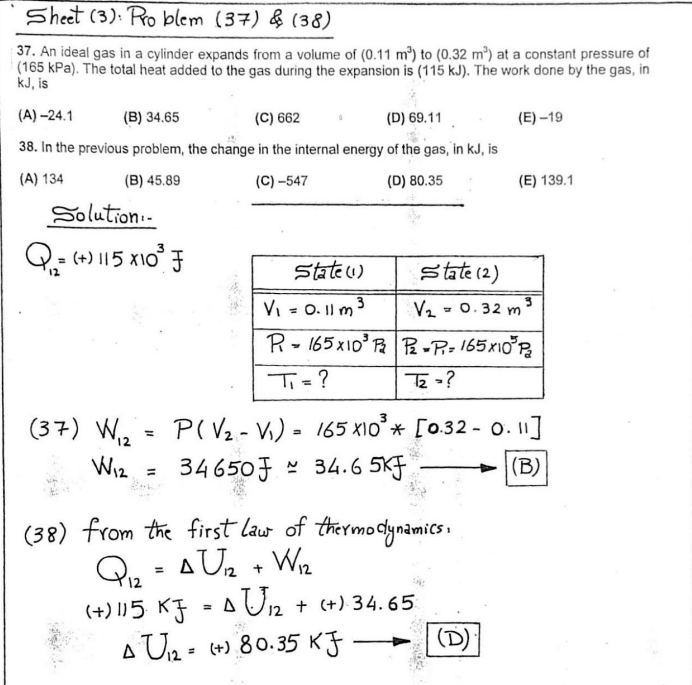 Sheet (3): Problem (37) & (38)
37. An ideal gas in a cylinder expands from a volume of (0.11 m³) to (0.32 m³) at a constant pressure of
(165 kPa). The total heat added to the gas during the expansion is (115 kJ). The work done by the gas, in
kJ, is
(A) –24.1 (B) 34.65 (C) 662 (D) 69.11 (E) –19
38. In the previous problem, the change in the internal energy of the gas, in kJ, is
(A) 134 (B) 45.89 (C) –547 (D) 80.35 (E) 139.1
Solution:-
Q₁₂ = (+) 115 x10³ J
State (1) State (2)
V₁ = 0.11 m³ V₂ = 0.32 m³
P₁ = 165x10³ Pa P₂ = P₁ = 165x10⁵ Pa
T₁ = ? T₂ = ?
(37) W₁₂ = P(V₂ - V₁) = 165 x10³ * [0.32 - 0.11]
W₁₂ = 34650 J ≃ 34.65 KJ → (B)
(38) from the first law of thermodynamics:
Q₁₂ = ΔU₁₂ + W₁₂
(+) 115 KJ = ΔU₁₂ + (+) 34.65
ΔU₁₂ = (+) 80.35 KJ → (D)